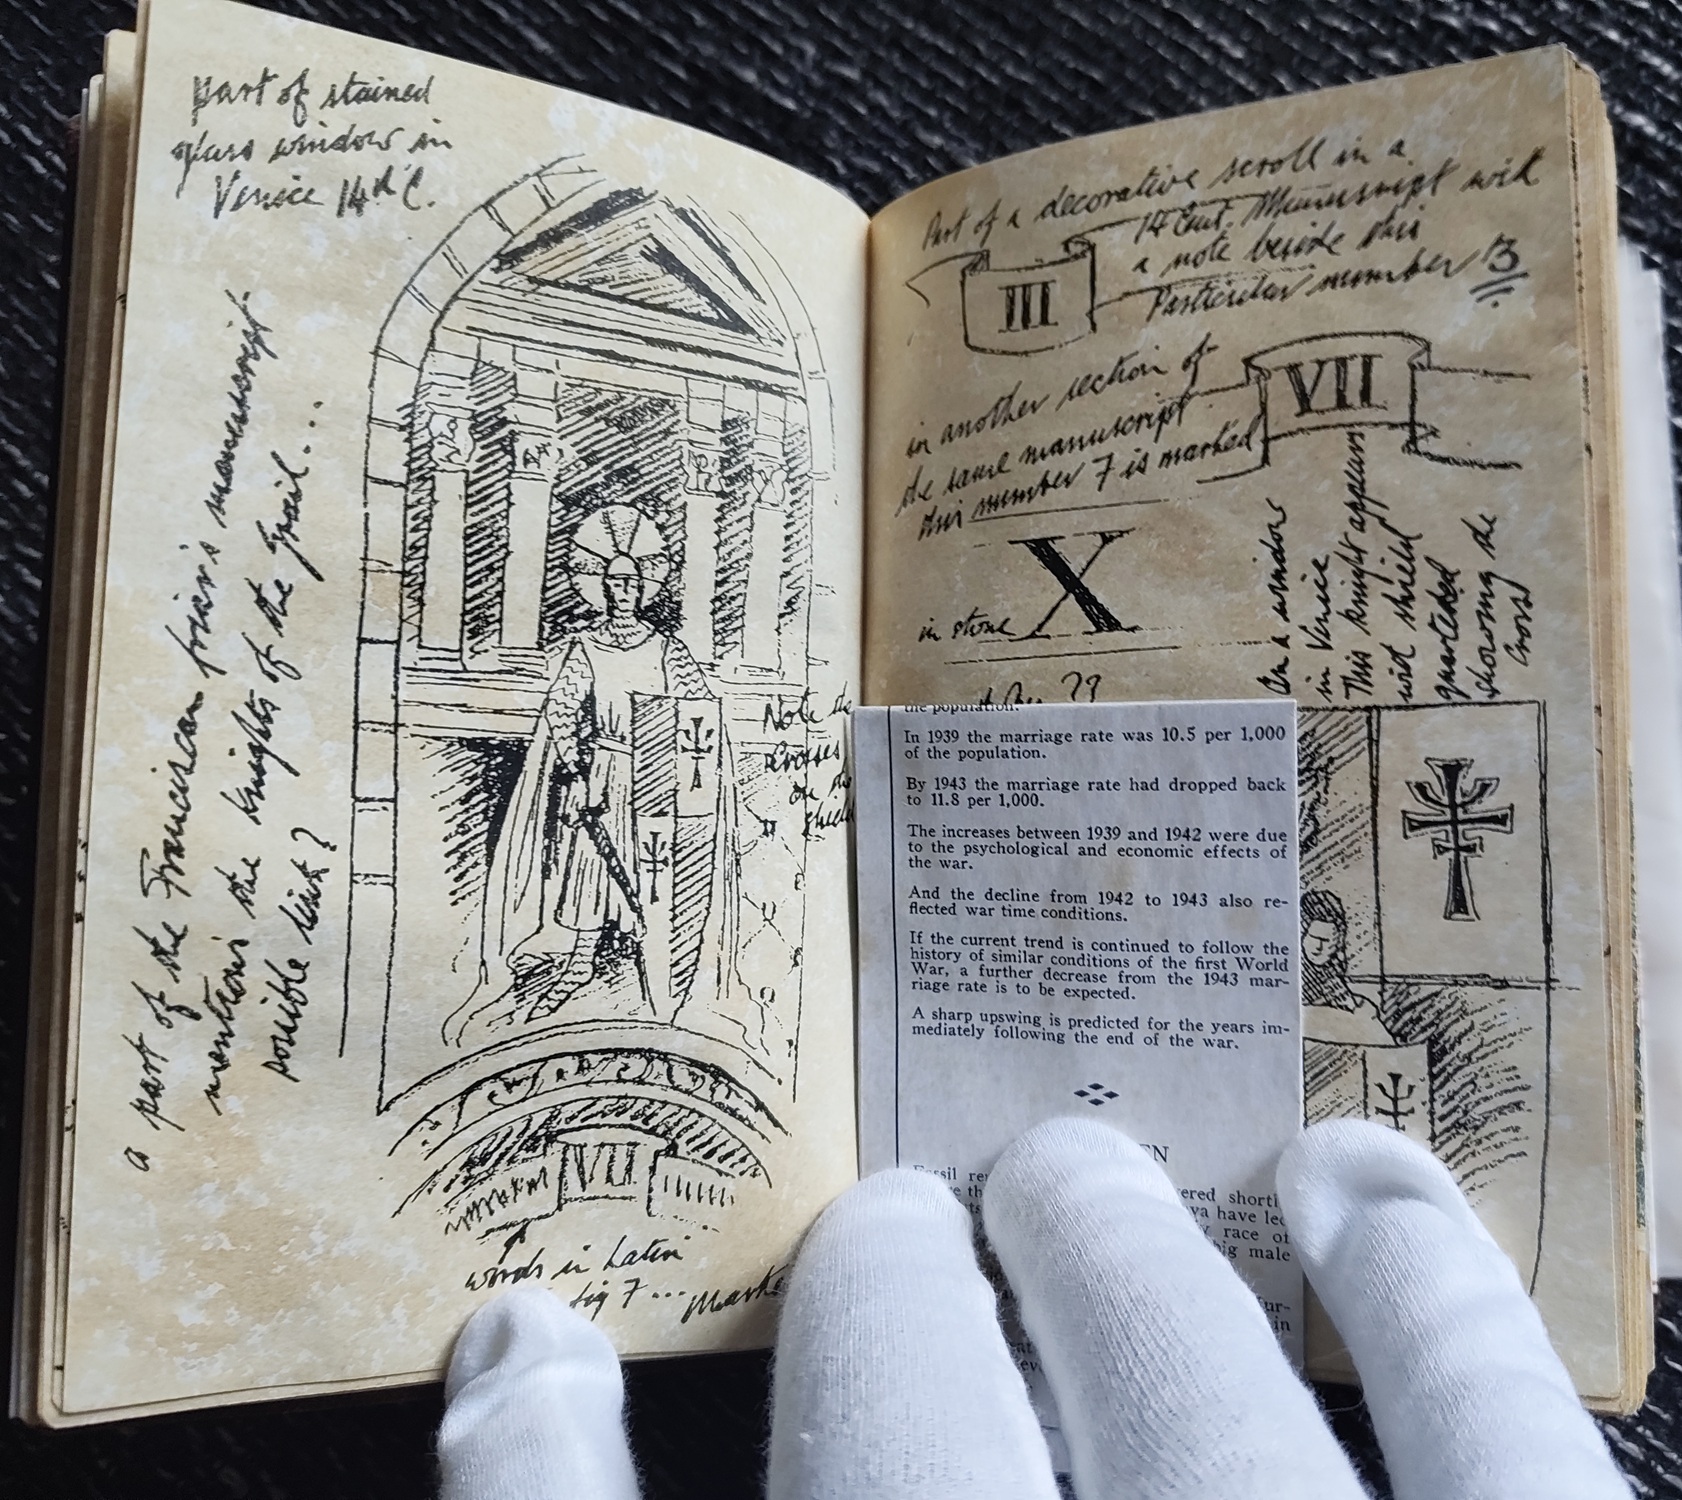 part of stained
glass window in
Venice 14th C.
a part of the Franciscan friar's manuscript
mentions the knights of the Grail...
possible link?
Note the
crosses
on the
shield
VII
words in Latin
fig 7 ...
Part of a decorative scroll in a
14 Cent. Manuscript with
a note beside this
Particular number 13
III
in another section of
the same manuscript
this number 7 is marked
VII
X
in stone
??
On a window
in Venice
This knight appears
with shield
quartered
showing the
Cross
the population.
In 1939 the marriage rate was 10.5 per 1,000
of the population.
By 1943 the marriage rate had dropped back
to 11.8 per 1,000.
The increases between 1939 and 1942 were due
to the psychological and economic effects of
the war.
And the decline from 1942 to 1943 also re-
flected war time conditions.
If the current trend is continued to follow the
history of similar conditions of the first World
War, a further decrease from the 1943 mar-
riage rate is to be expected.
A sharp upswing is predicted for the years im-
mediately following the end of the war.
have led
race of
big male
in